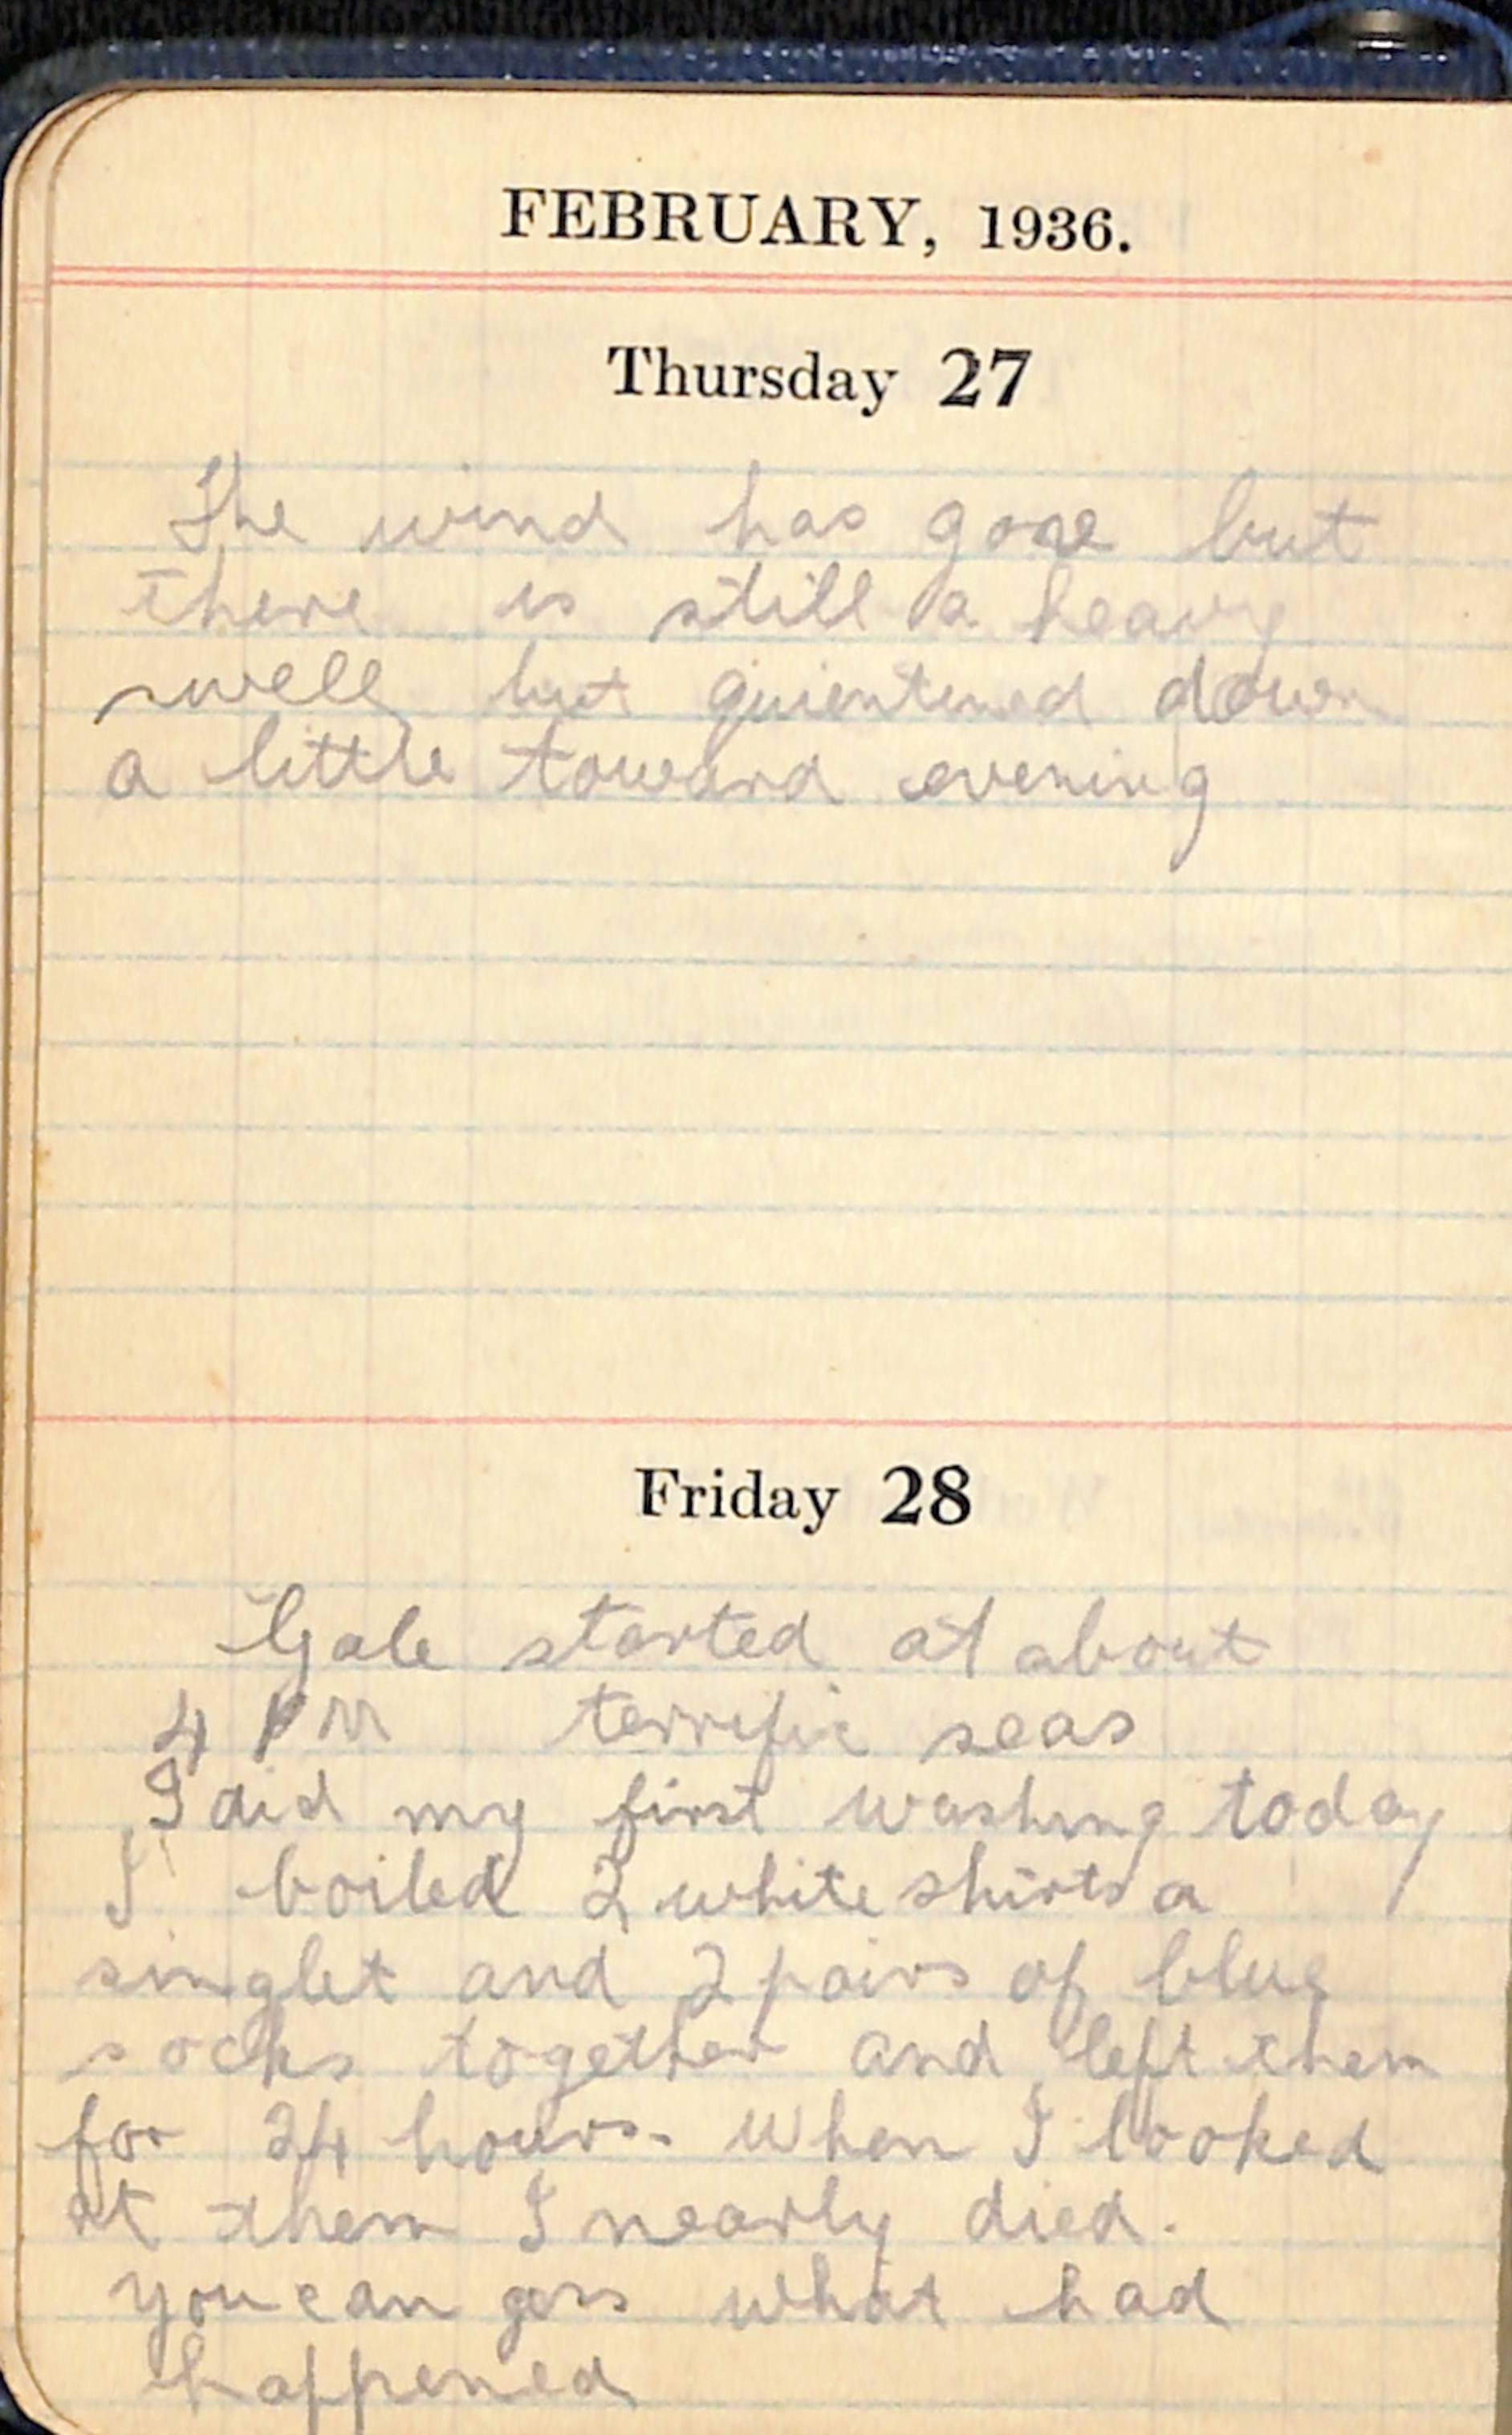 FEBRUARY, 1936.
Thursday 27
The wind has gone but
there is still a heavy
swell but quientened down
a little toward evening
Friday 28
Gale started at about
4 PM terrific seas
I did my first washing today
I boiled 2 white shirts a
singlet and 2 pairs of blue
socks together and left them
for 24 hours. When I looked
at them I nearly died.
you can gess what had
happened